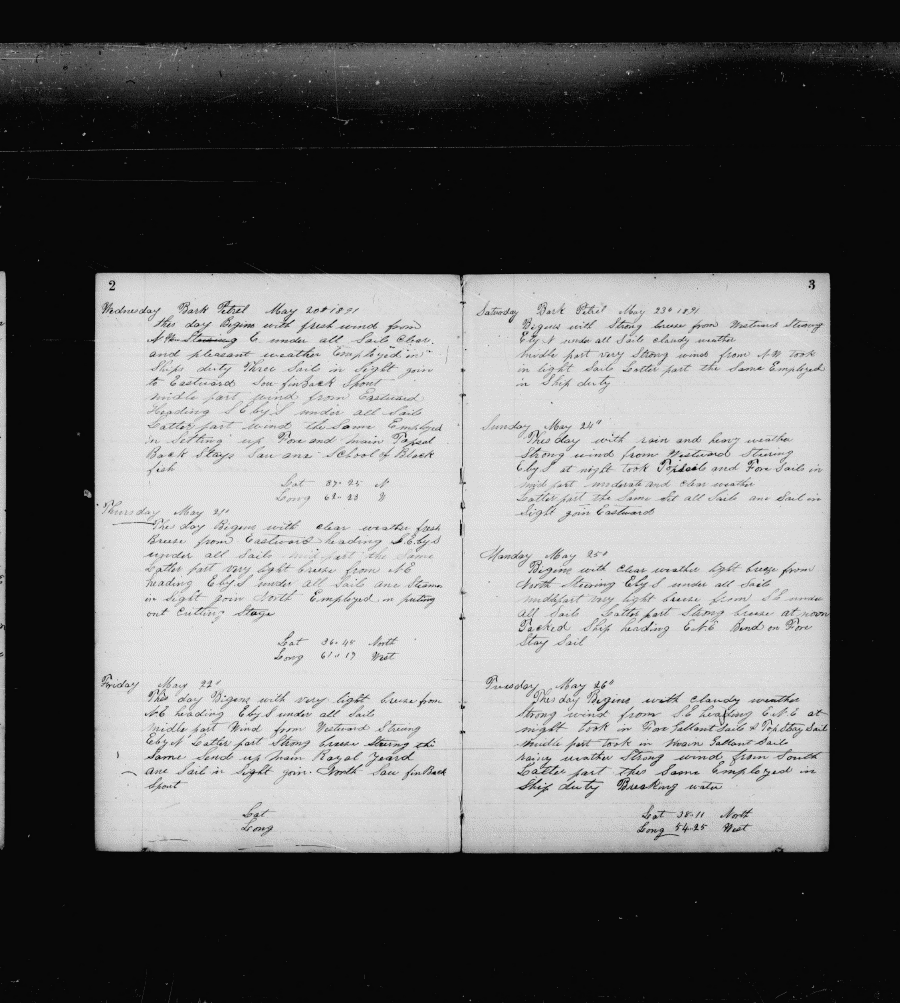 2
Wednesday Bark Petrel May 20th 1891
this day Begins with fresh wind from
N W Steering E under all Sails Clear
and pleasant weather Employed in
Ships duty Three Sail in Sight goin
to Eastward Sou finBack Spout
midle part wind from Eastward
Heading S E by S under all Sails
Latter part wind the Same Employed
in Setting up Fore and main Topsal
Back Stays Sau ane School of Black
fish
Lat 37-25 N
Long 62-23 W
Thursday May 21"
This day Begins with clear weather fresh
Breeze from Eastward heading S.E by S
under all Sails mid part the Same
Latter part very light breeze from N E
heading E by S under all Sails ane Steamer
in sight goin North Employed in puting
out Cutting Stage
Lat 36-48 North
Long 61-19 West
Friday May 22"
This day Begins with very light breeze from
N.E heading E by S under all Sails
midle part Wind from Westward Streing
E by N Latter part Strong breese Streing the
Same Send up main Royal Yeard
ane Sail in Sight goin North Sau finBack
Spout
Lat
Long
3
Saturday Bark Petrel May 23" 1891
Begins with Strong breese from Westward Streing
E by N under all Sails claudy weather
midle part very Strong wind from N W took
in light Sails Latter part the Same Employed
in Ship duty
Sunday May 24"
This day with rain and heavy weather
Strong wind from Westward Steering
E by S at night took Topsails and Fore Sails in
mid part moderate and clear weather
Latter part the Same Set all Sails ane Sail in
Sight goin Eastward
Manday May 25"
Begins with clear weather light breeze from
North Steering E by S under all Sails
middle part very light breese from S E under
all Sails Latter part Strong breese at noon
Tacked Ship heading E N E Bend on Fore
Stay Sail
Tuesday May 26"
This day Begins with claudy weather
Strong wind from S.E heading E.N.E at
night took in Fore Gallant Sails & Top Stay Sail
midle part took in main Gallant Sails
rainy weather Strong wind from South
Latter part the Same Employed in
Ship duty Breaking water
Lat 38-11 North
Long 54-25 West